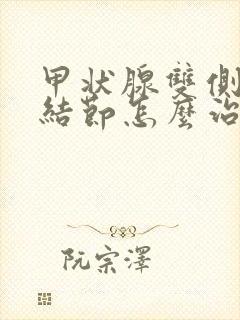 甲状腺雙側
結節怎麼治
阮宗澤